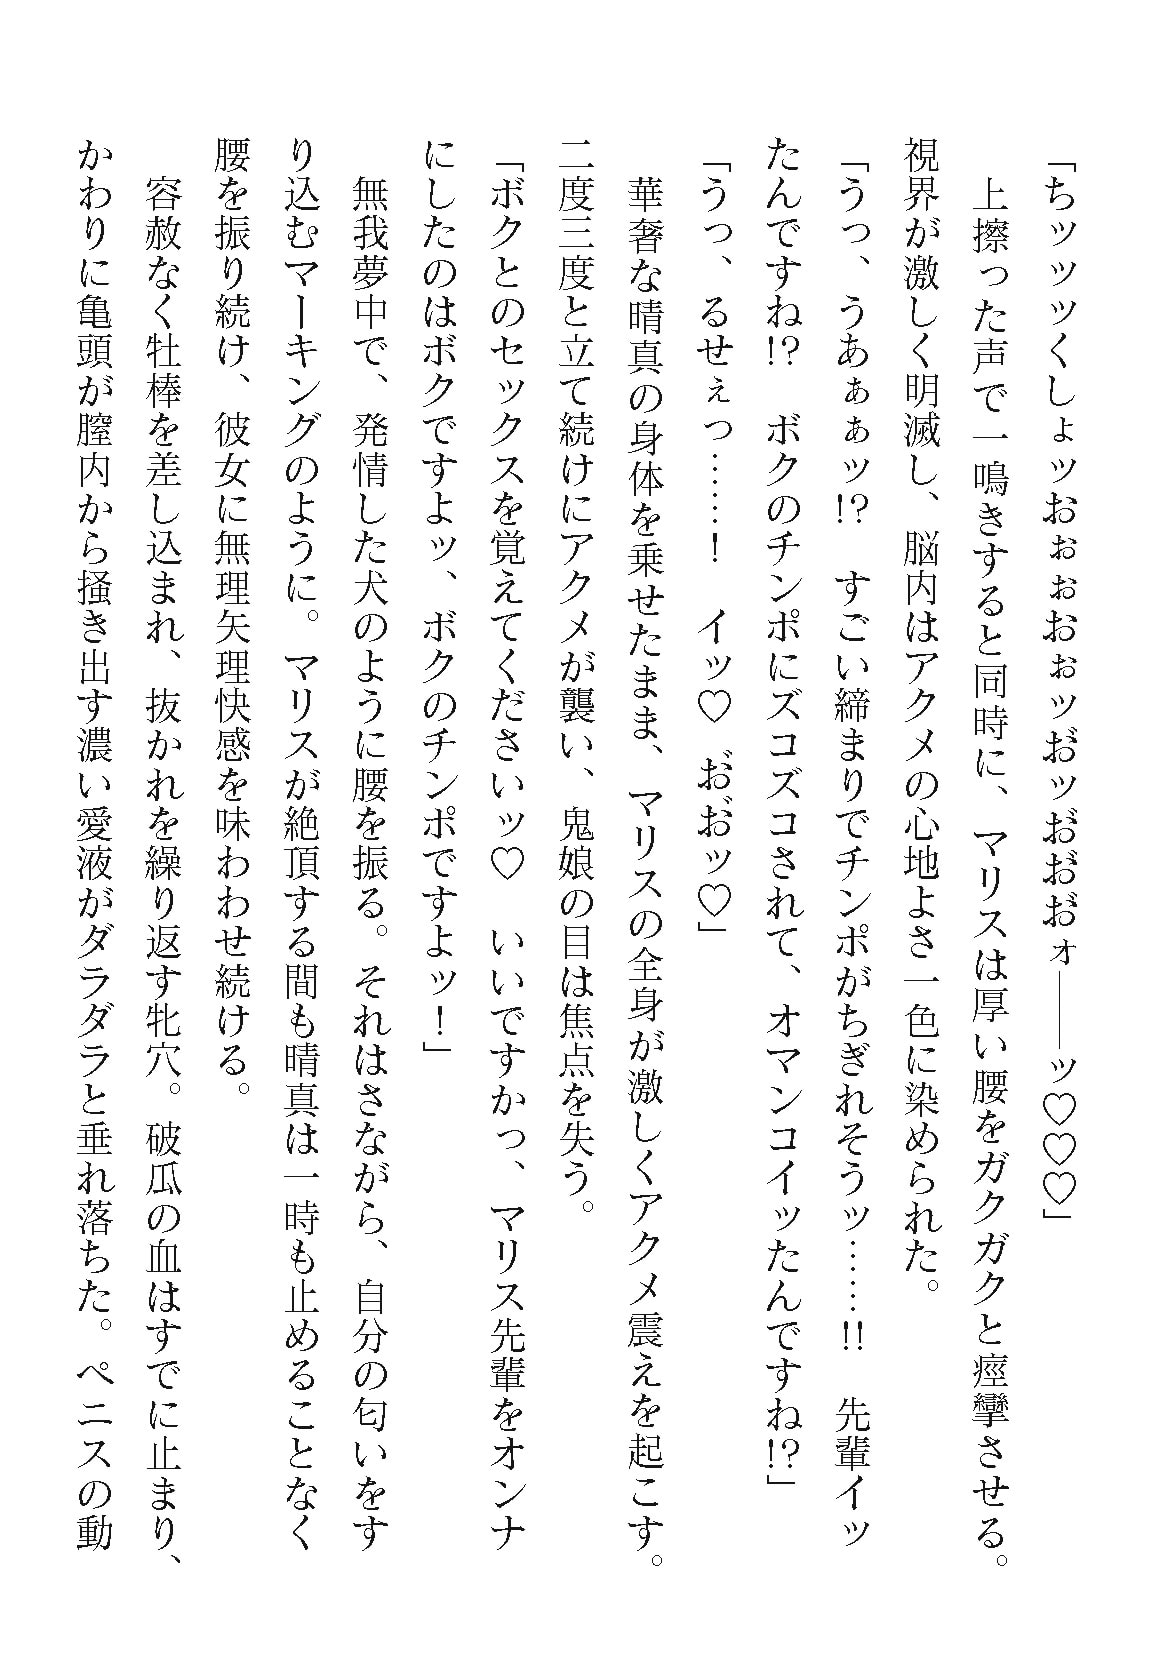 「ちッッッくしょッおぉぉおぉッお゛ッお゛お゛お゛ォ――ッ♡♡♡」
上擦った声で一鳴きすると同時に、マリスは厚い腰をガクガクと痙攣させる。
視界が激しく明滅し、脳内はアクメの心地よさ一色に染められた。
「うっ、うあぁぁッ!? すごい締まりでチンポがちぎれそうッ……!! 先輩イッ
たんですね!? ボクのチンポにズコズコされて、オマンコイッたんですね!?」
「うっ、るせぇっ……! イッ♡ お゛お゛ッ♡」
華奢な晴真の身体を乗せたまま、マリスの全身が激しくアクメ震えを起こす。
二度三度と立て続けにアクメが襲い、鬼娘の目は焦点を失う。
「ボクとのセックスを覚えてくださいッ♡ いいですかっ、マリス先輩をオンナ
にしたのはボクですよッ、ボクのチンポですよッ!」
無我夢中で、発情した犬のように腰を振る。それはさながら、自分の匂いをす
り込むマーキングのように。マリスが絶頂する間も晴真は一時も止めることなく
腰を振り続け、彼女に無理矢理快感を味わわせ続ける。
容赦なく牡棒を差し込まれ、抜かれを繰り返す牝穴。破瓜の血はすでに止まり、
かわりに亀頭が膣内から掻き出す濃い愛液がダラダラと垂れ落ちた。ペニスの動